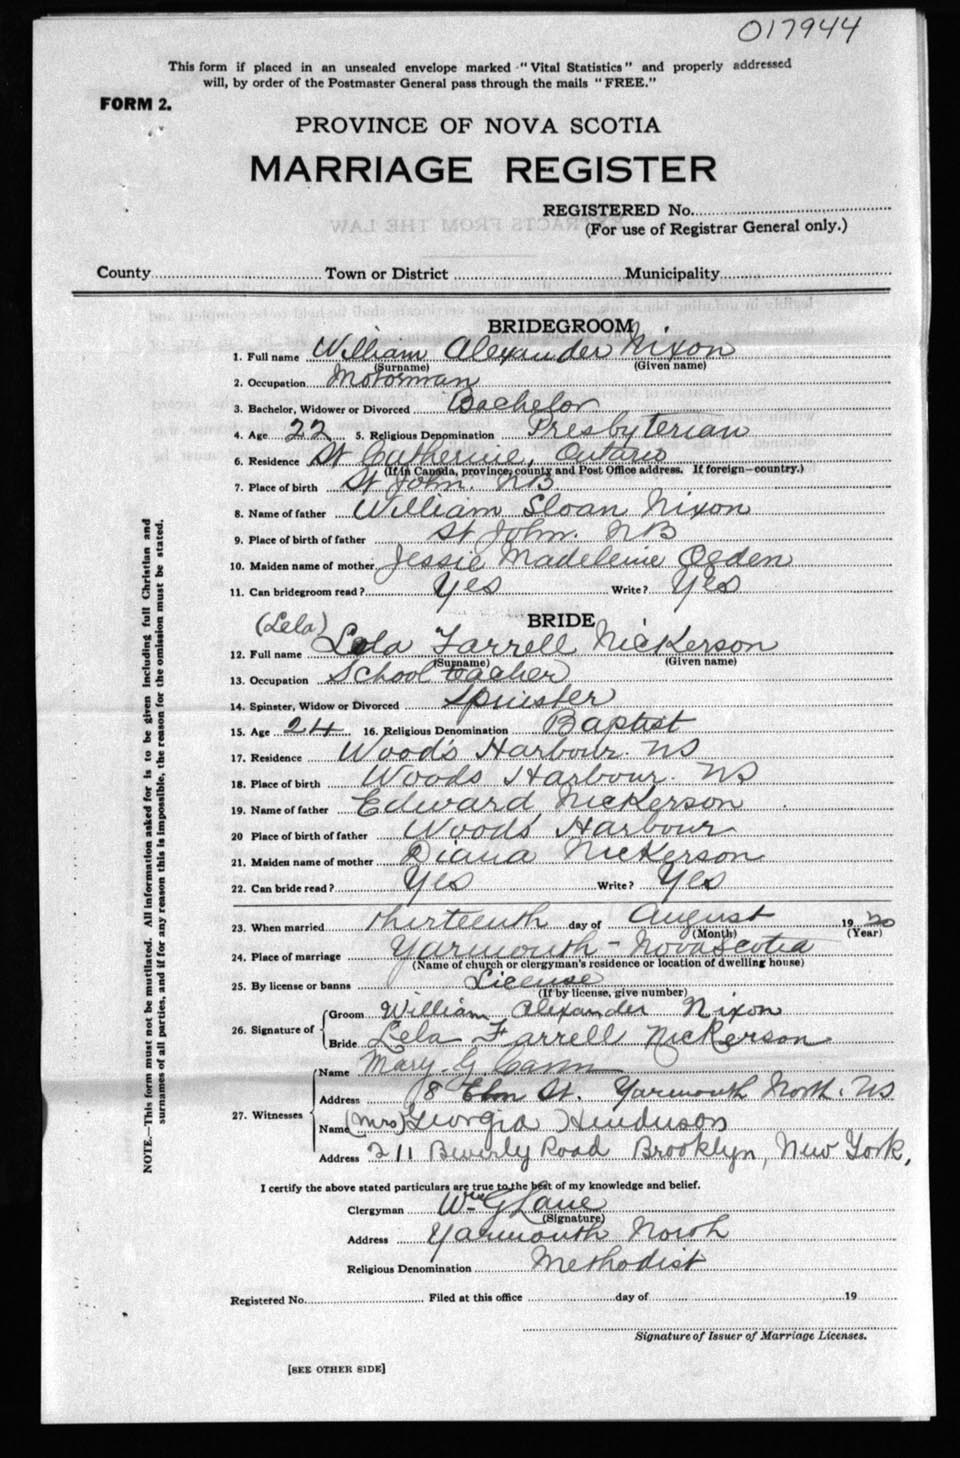 017944
This form if placed in an unsealed envelope marked "Vital Statistics" and properly addressed
will, by order of the Postmaster General pass through the mails "FREE."
FORM 2.
PROVINCE OF NOVA SCOTIA
MARRIAGE REGISTER
REGISTERED No.
(For use of Registrar General only.)
County Town or District Municipality
BRIDEGROOM
1. Full name William Alexander Nixon
(Surname) (Given name)
2. Occupation Motorman
3. Bachelor, Widower or Divorced Bachelor
4. Age 22 5. Religious Denomination Presbyterian
6. Residence St Catherine, Ontario
(If in Canada, province, county and Post Office address. If foreign—country.)
7. Place of birth St John. NB
8. Name of father William Sloan Nixon
9. Place of birth of father St John. NB
10. Maiden name of mother Jessie Madeleine Ogden
11. Can bridegroom read? Yes Write? Yes
BRIDE
(Lela)
12. Full name Lela Farrell Nickerson
(Surname) (Given name)
13. Occupation School teacher
14. Spinster, Widow or Divorced Spinster
15. Age 24 16. Religious Denomination Baptist
17. Residence Wood's Harbour. NS
18. Place of birth Woods Harbour. NS
19. Name of father Edward Nickerson
20 Place of birth of father Woods Harbour
21. Maiden name of mother Diana Nickerson
22. Can bride read? Yes Write? Yes
23. When married thirteenth day of August 1920
(Month) (Year)
24. Place of marriage Yarmouth - Nova Scotia
(Name of church or clergyman's residence or location of dwelling house)
25. By license or banns License
(If by license, give number)
26. Signature of Groom William Alexander Nixon
Bride Lela Farrell Nickerson
27. Witnesses
Name Mary. G. Cann
Address 8 Elm St. Yarmouth North. NS
Name (Mrs) Georgia Henderson
Address 211 Beverly Road Brooklyn, New York,
I certify the above stated particulars are true to the best of my knowledge and belief.
Clergyman Wm G Lane
(Signature)
Address Yarmouth North
Religious Denomination Methodist
Registered No. Filed at this office day of 19
Signature of Issuer of Marriage Licenses.
[SEE OTHER SIDE]
NOTE.—This form must not be mutilated. All information asked for is to be given including full Christian and
surnames of all parties, and if for any reason this is impossible, the reason for the omission must be stated.